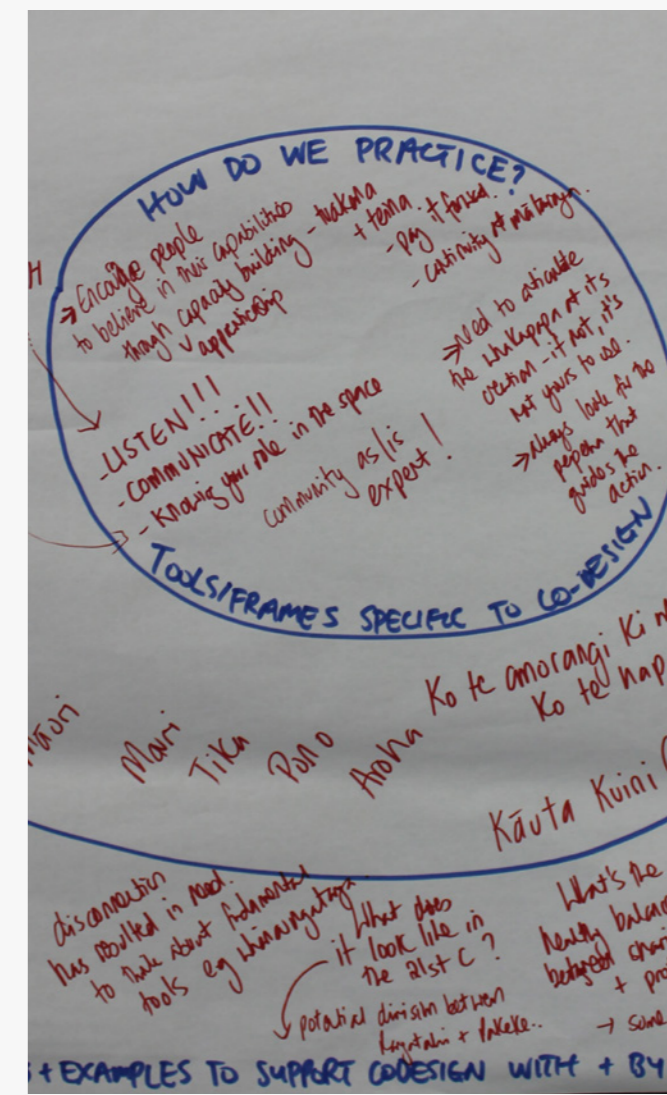 HOW DO WE PRACTICE?
H
→ Encourage people
to believe in their capabilities
though capacity building - tuakana
+ teina
apprenticeship
- pay it forward.
- continuity of mātauranga.
→ Need to articulate
the whakapapa of its
creation - if not, it's
not yours to use.
→ Always look for the
pepeha that
guides the
action.
- LISTEN!!!
- COMMUNICATE!!
- Knowing your role in the space
community as/is
expert!
TOOLS/FRAMES SPECIFIC TO CO-DESIGN
Ko te amorangi ki m
Ko te hap
Mauri
Tika
Pono
Aroha
Kāuta Kuini
disconnection
has resulted in need
to think about fundamental
tools eg whānaungatanga
What does
it look like in
the 21st C?
potential division between
+ Pakeke..
What's the
healthy balance
between
+
→ some
+ EXAMPLES TO SUPPORT CODESIGN WITH + BY